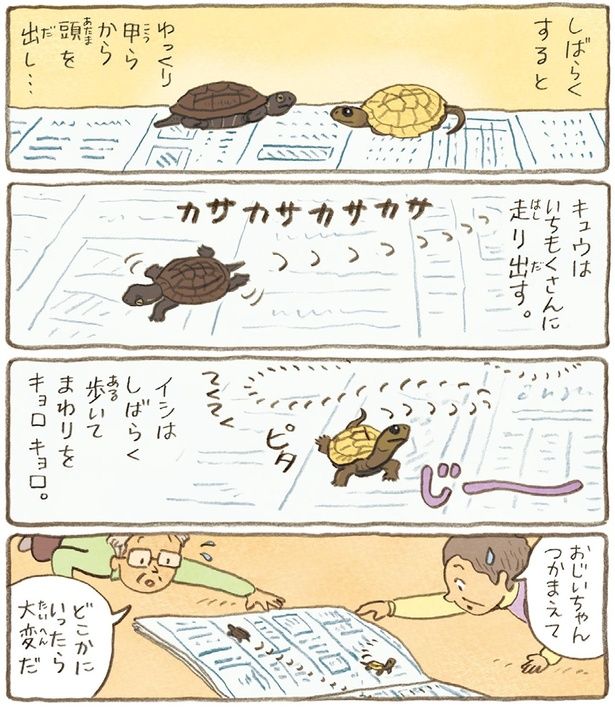 しばらく
すると
ゆっくり
甲らこう
から
頭をあたま
出し…だ
キュウは
いちもくさんに
走り出す。はしだ
カサカサカサカサ
てくてく
ピタ
じーーー
イシは
しばらく
歩いてある
まわりを
キョロキョロ。
おじいちゃん
つかまえて
どこかに
いったら
大変だたいへん